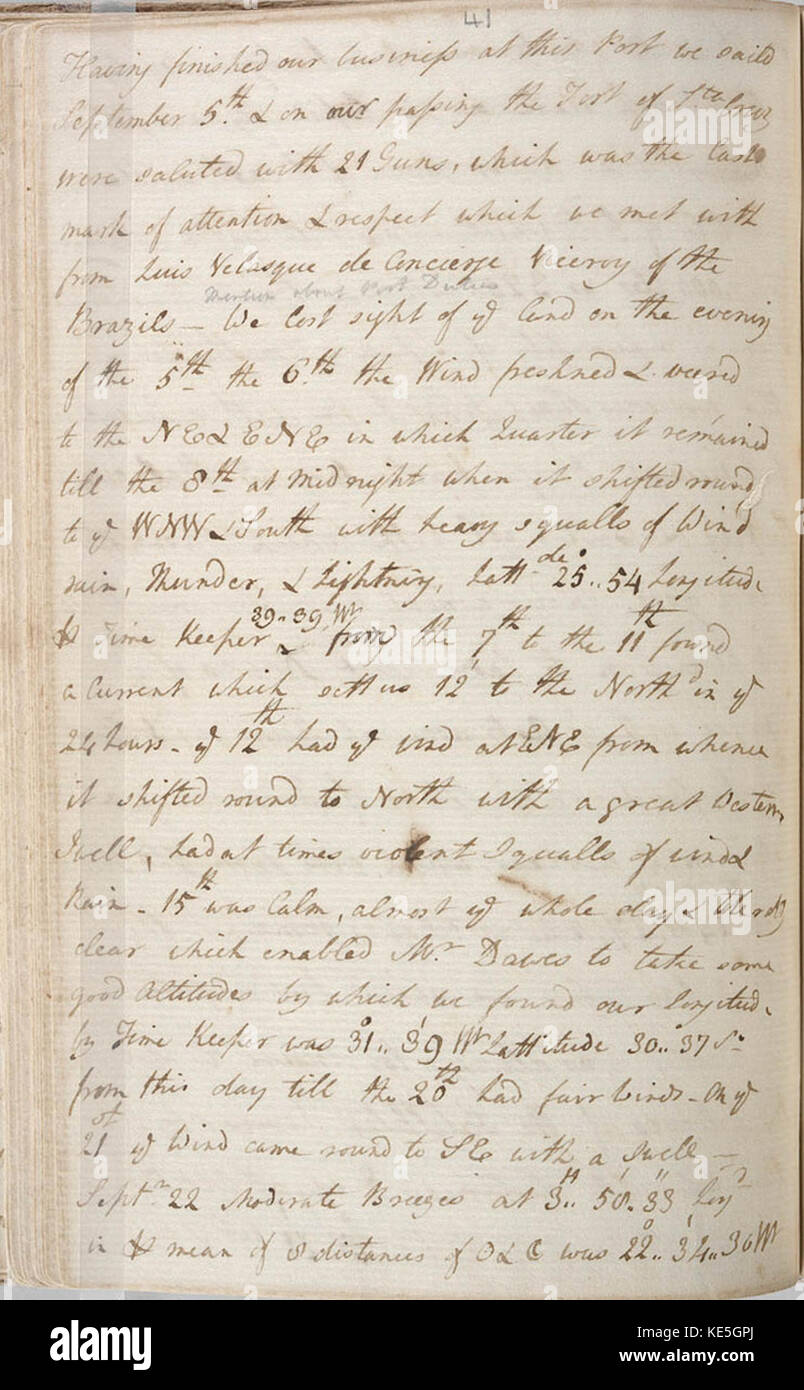 41
Having finished our business at this Port we saild
September 5th & on our passing the Fort of Sta Cruz
were saluted with 21 Guns, which was the last
mark of attention & respect which we met with
from Luis Velasque de Concierge Viceroy of the
Mention about Port Duties
Brazils — We lost sight of ye land on the evening
of the 5th the 6th the Wind freshned & veered
to the NE & ENE in which Quarter it remained
till the 8th at Midnight when it shifted round
to ye WNW & South with heavy squalls of Wind
rain, Thunder, & Lightning, Lattde 25°..54 Longitude
39..39 Wt
Time Keeper from the 7th to the 11th found
a Current which sett us 12' to the Northd in ye
24 hours - ye 12th had ye wind at ENE from whence
it shifted round to North with a great Western
Swell, had at times violent Squalls of wind &
Rain - 15th was Calm, almost ye whole day & Very
clear which enabled Mr Dawes to take some
good Altitudes by which we found our Longitude
by Time Keeper was 31°..39' Wt Lattitude 30..37 So
from this day till the 20th had fair Winds - On ye
21st ye Wind came round to SE with a Swell —
Septr 22 Moderate Breezes at 3H..58'..33'' Longd
in mean of 8 distances of was 22°..34'..30 Wt
alamy
alamy
alamy
Image ID: KE5GPJ
www.alamy.com